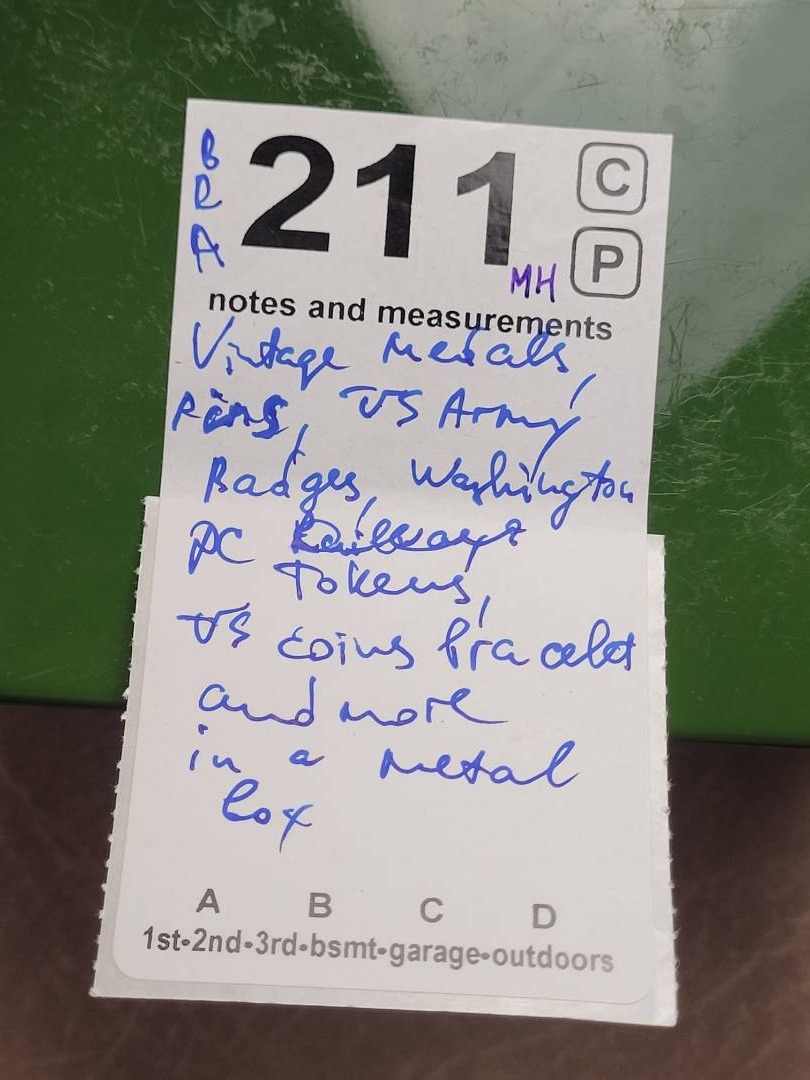 B
R
A
211
C
P
MH
notes and measurements
Vintage Medals,
Pins, US Army
Badges, Washington
DC Railways
Tokens,
US coins bracelet
and more
in a metal
box
A B C D
1st•2nd•3rd•bsmt•garage•outdoors